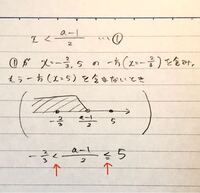 x < (a-1)/2 …①
①が x=-2/3, 5 の 一方(x=-2/3)を含み,
もう一方(x=5)を含まないとき
-2/3 (a-1)/2 5
-2/3 < (a-1)/2 ≦ 5